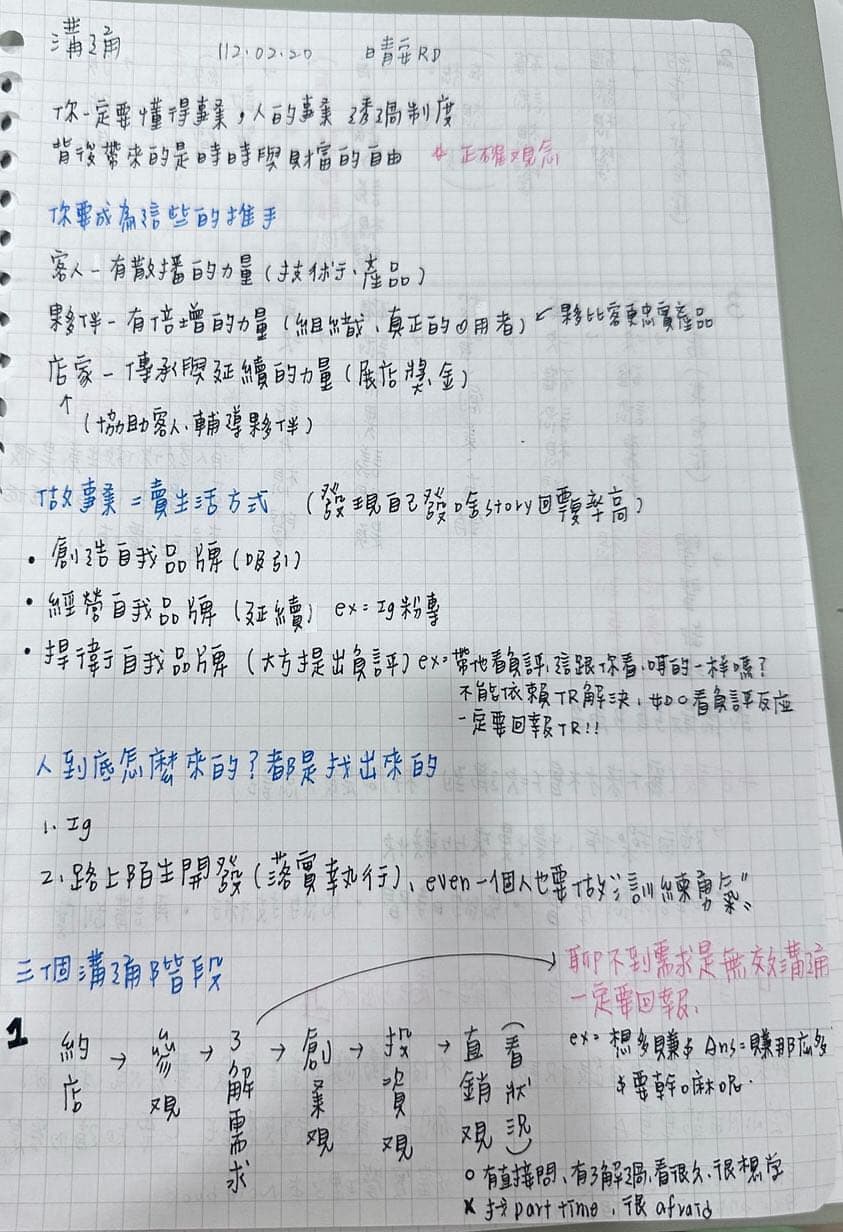 溝通 112.02.20 晴安RD
你一定要懂得事業,人的事業 透過制度
背後帶來的是時時與財富的自由 ← 正確觀念
你要成為這些的推手
客人-有散播的力量(技術、產品)
夥伴-有倍增的力量(組織、真正的自用者)↙夥比客更忠實產品
店家-傳承與延續的力量(展店獎金)
↑
(協助客人、輔導夥伴)
做事業=賣生活方式 (發現自己發啥story回覆率高)
• 創造自我品牌(吸引)
• 經營自我品牌(延續) ex=Ig粉專
• 捍衛自我品牌(大方提出負評)ex=帶他看負評,這跟你看的一样嗎?
不能依賴TR解決,如OO看負評反應
一定要回報TR!!
人到底怎麼來的?都是找出來的
1. Ig
2. 路上陌生開發(落實執行)、even一個人也要做"訓練勇氣"
三個溝通階段
聊不到需求是無效溝通
一定要回報.
1 約店→參觀→了解需求→創業觀→投資觀→直銷觀(看狀況)
ex= 想多賺$ Ans=賺那麼多
$要幹嘛呢.
○ 有直接問、有了解過,看很久、很想学
× 找part time、很 afraid